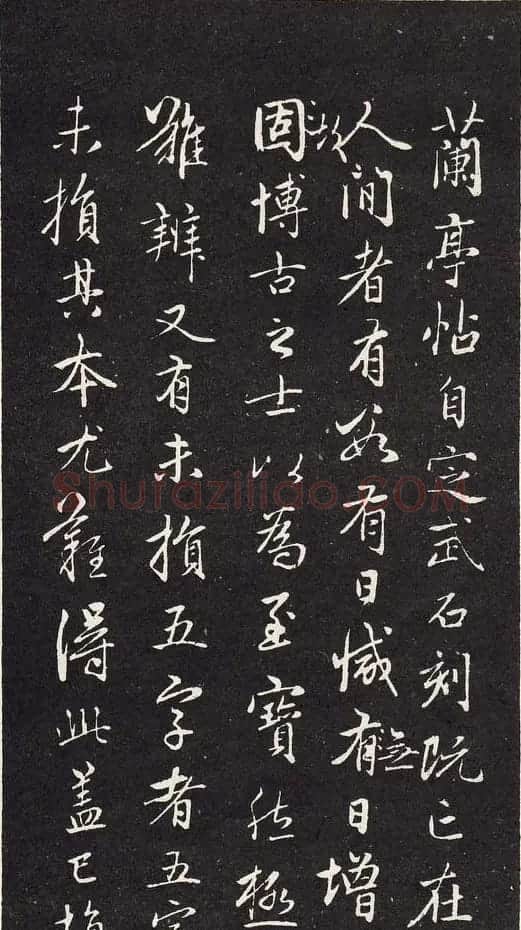 蘭亭帖自定武石刻既亡在
人間者有數有日減有無日增
固博古之士以為至寶然極
難辨又有未損五字者五字
未損其本尤難得此蓋已損
Shufaziliao.COM